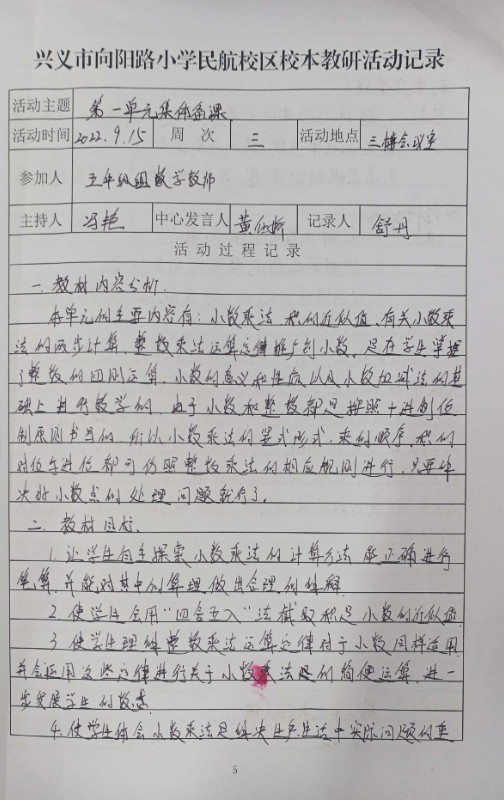 兴义市向阳路小学民航校区校本教研活动记录
活动主题 第一单元集体备课
活动时间 2022.9.15 周次 三 活动地点 三楼会议室
参加人 五年级组数学教师
主持人 冯艳 中心发言人 黄 记录人 舒丹
活动过程记录
一.教材内容分析.
本单元的主要内容有:小数乘法 积的近似值.有关小数乘
法的两步计算,整数乘法运算定律推广到小数,是在学生掌握
了整数的四则运算,小数的意义和性质以及小数加减法的基
础上进行教学的,由于小数和整数都是按照十进制位
制原则书写的,所以小数乘法的竖式形式,乘的顺序,积的
对位与进位都可仿照整数乘法的相应规则进行,只要解
决好小数点的处理问题就行了。
二.教材目标.
1.让学生自主探索小数乘法的计算方法 能正确进行
笔算,并能对其中的算理做出合理的解释.
2.使学生会用“四舍五入”法截取积是小数的近似值.
3.使学生理解整数乘法运算定律对于小数同样适用,
并会运用这些定律进行关于小数乘法的简便运算,进一
步发展学生的数感.
4.使学生体会小数乘法是解决生产生活中实际问题的重
5